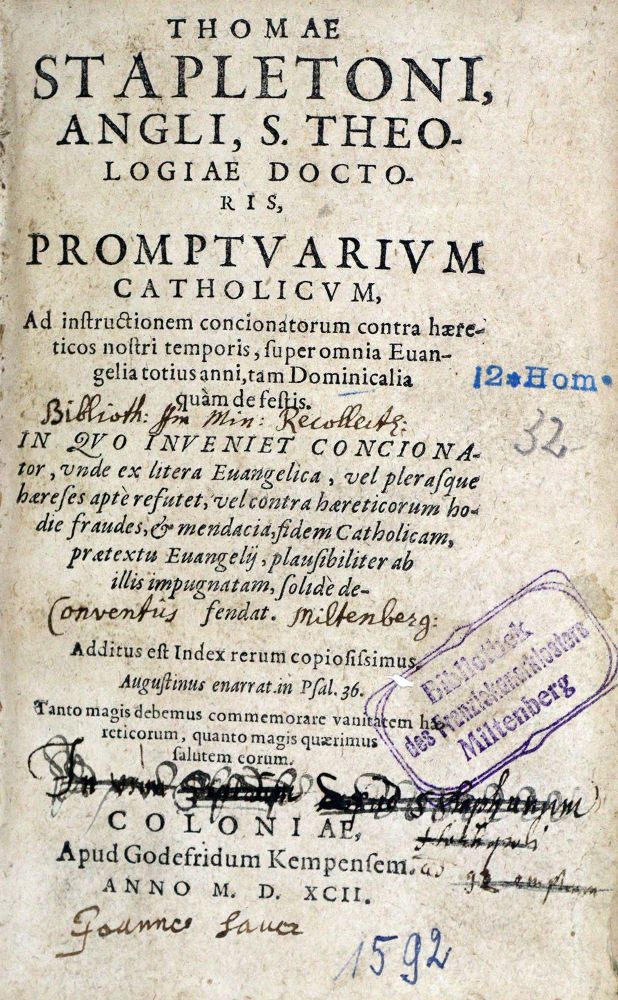 THOMAE
STAPLETONI,
ANGLI, S. THEO-
LOGIAE DOCTO-
RIS,
PROMPTVARIVM
CATHOLICVM,
Ad instructionem concionatorum contra hære-
ticos nostri temporis, super omnia Euan-
gelia totius anni, tam Dominicalia
quàm de festis.
12*Hom*
32
Biblioth: Min: Recollect:
IN QVO INVENIET CONCIONA-
tor, vnde ex litera Euangelica, vel plerasque
hæreses aptè refutet, vel contra hæreticorum ho-
die fraudes, & mendacia, fidem Catholicam,
prætextu Euangelij, plausibiliter ab
illis impugnatam, solidè de-
fendat.
Conventûs Miltenberg:
Additus est Index rerum copiosissimus.
Augustinus enarrat. in Psal. 36.
Tanto magis debemus commemorare vanitatem hæ-
reticorum, quanto magis quærimus
salutem eorum.
Bibliothek
des Franziskanerklosters
Miltenberg
COLONIAE,
Apud Godefridum Kempensem.
ANNO M. D. XCII.
1592